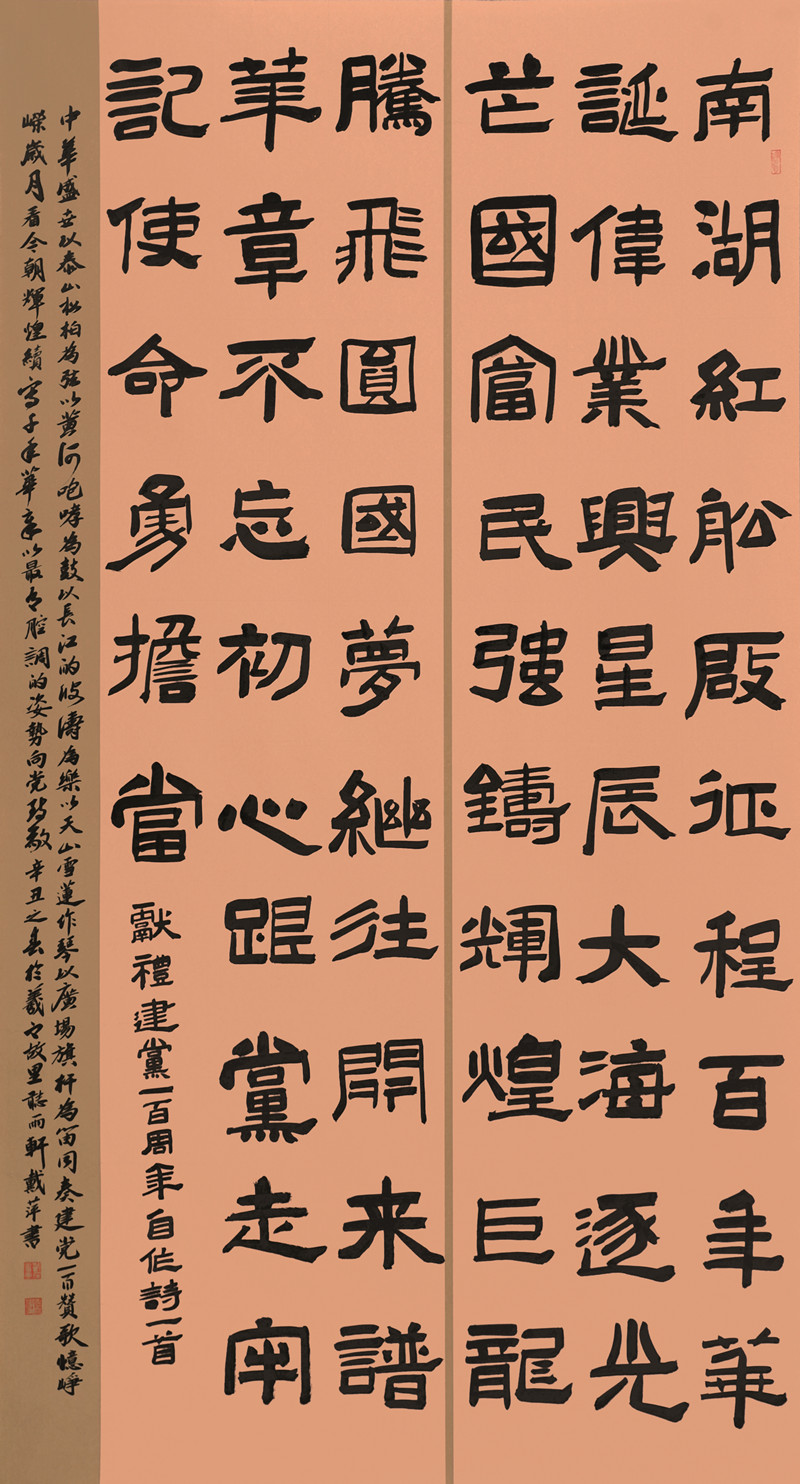 南湖紅舩啟征程百年華
誕偉業興星辰大海逐光
芒國富民强鑄輝煌巨龍
騰飛圓國夢繼往開来譜
華章不忘初心跟黨走牢
記使命勇擔當
獻禮建黨一百周年自作詩一首
中華盛世以泰山松柏為弦以黄河咆哮為鼓以長江的波濤為樂以天山雪蓮作琴以廣場旗杆為笛同奏建党一百贊歌憶崢
嶸歲月看今朝輝煌續寫千年華章以最腔調的姿勢向党致敬辛丑之春於羲之故里聽雨軒戴萍書